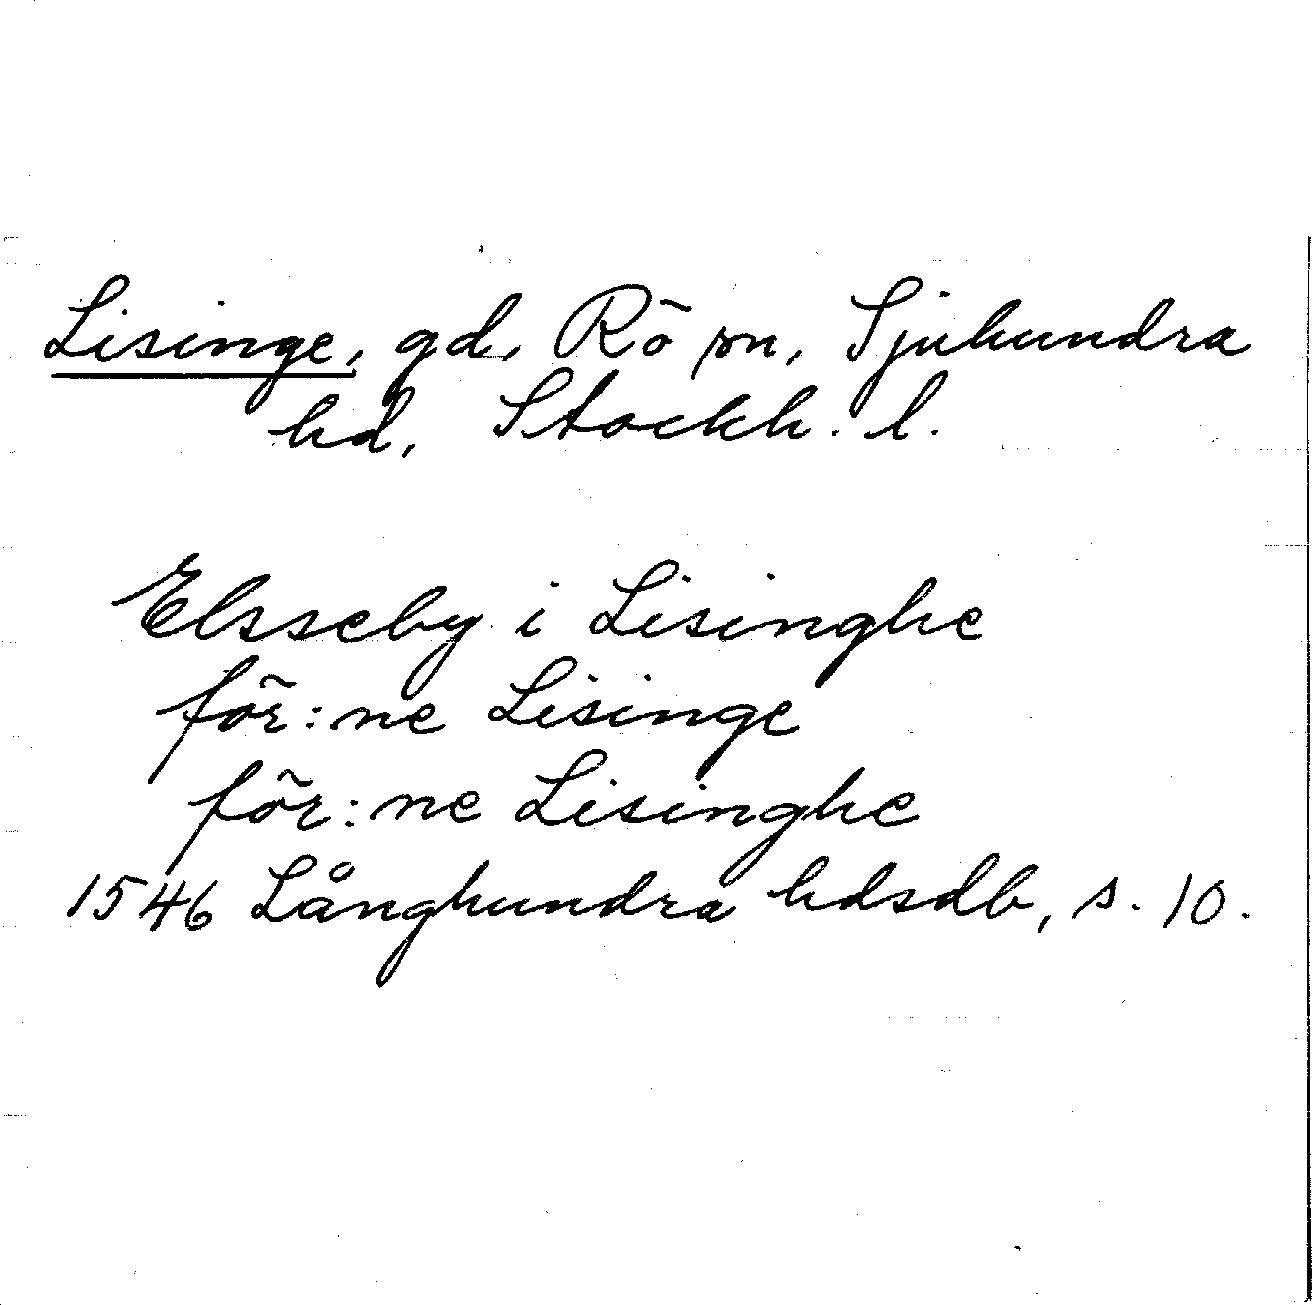 Lisinge, gd, Rö sn, Sjuhundra
hd, Stockh. l.
Elsseby i Lisinghe
för:ne Lisinge
för:ne Lisinghe
1546 Långhundra hdsdb, s. 10.